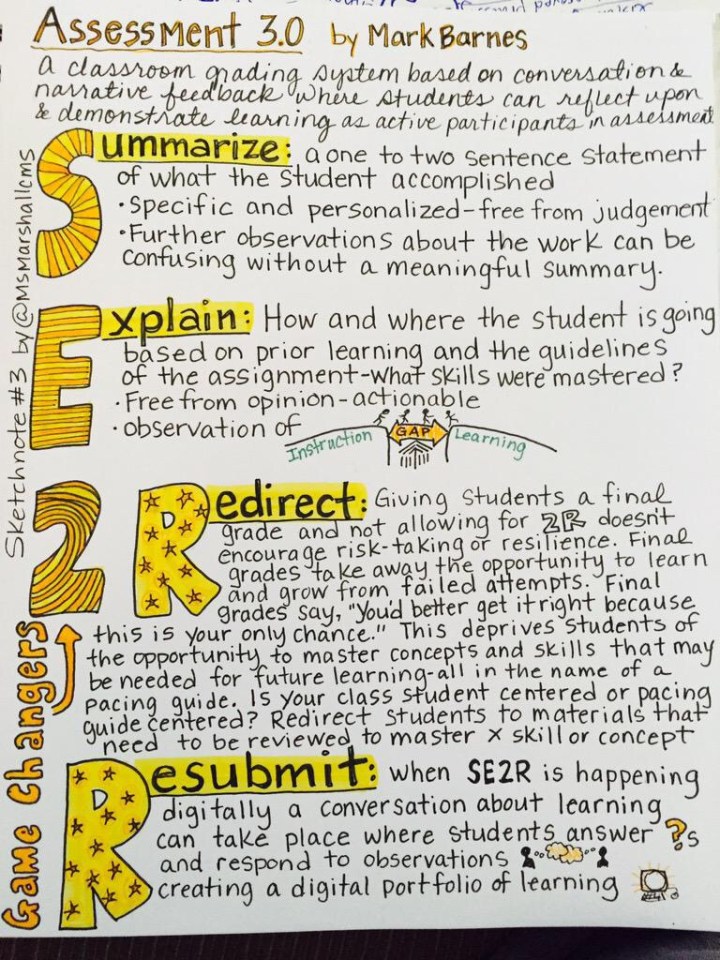 Assessment 3.0 by Mark Barnes
a classroom grading system based on conversation &
narrative feedback where students can reflect upon
& demonstrate learning as active participants in assessment
Summarize: a one to two sentence statement
of what the student accomplished
• Specific and personalized-free from judgement
• Further observations about the work can be
confusing without a meaningful summary.
Explain: How and where the student is going
based on prior learning and the guidelines
of the assignment-what skills were mastered?
• Free from opinion-actionable
• observation of
Instruction GAP Learning
2
Redirect: Giving students a final
grade and not allowing for 2R doesn't
encourage risk-taking or resilience. Final
grades take away the opportunity to learn
and grow from failed attempts. Final
grades say, "You'd better get it right because
this is your only chance." This deprives students of
the opportunity to master concepts and skills that may
be needed for future learning-all in the name of a
pacing guide. Is your class student centered or pacing
guide centered? Redirect students to materials that
need to be reviewed to master x skill or concept
Resubmit: when SE2R is happening
digitally a conversation about learning
can take place where students answer ?s
and respond to observations
creating a digital portfolio of learning
Sketchnote #3 by @MsMarshallcms
Game Changers